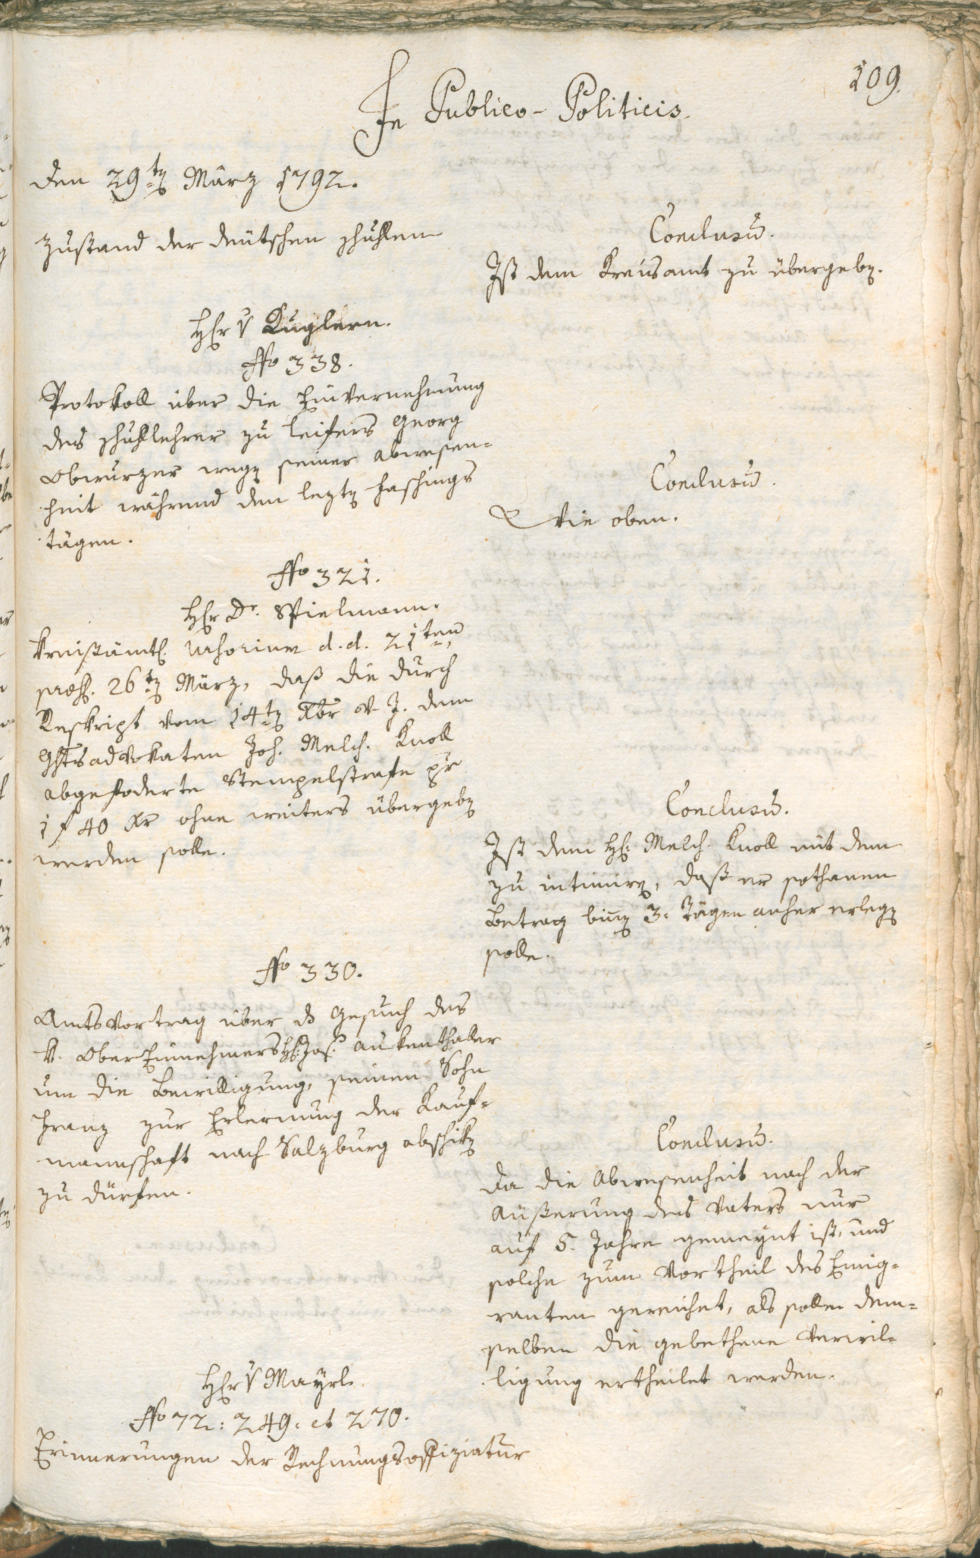 109.
In Publico-Politicis.
den 29tn März 1792.
Zustand der deütschen schuhlen
Conclusum.
Ist dem Kreisamt zu übergebn.
Hr v Kuglern.
No 338.
Protokoll über die Einvernehmung
des schuhllehrer zu Leifers Georg
Obwurzer wegn seiner abwesen=
heit während den leztn Faschings
tägen.
Conclusum.
Wie oben.
No 321.
Hr Dr. Spielmann.
Kreisämtl. d. d. 21ten
praes. 26tn März, daß die durch
Reskript vom 14tn Xbr v. J. dem
Ghtsadvokaten Joh. Melch. Knoll
abgefoderte Stempelstrafe pr
1 f 40 Xr ohne weiters übergebn
werden solle.
Conclusum.
Ist dem H: Melch. Knoll mit dem
zu intimirn, daß er sothanen
Betrag binn 3. Tägen anher erlegn
solle.
No 330.
Amtsvortrag über d Gesuch des
k. OberEinnehmers H: Jos. Aukenthaler
um die Bewilligung, seinen Sohn
Franz zur Erlernung der Kauf=
mannschaft nach Salzburg abschikn
zu dürfen.
Conclusum.
Da die Abwesenheit nach der
Äußerung des Vaters nur
auf 5. Jahre gemeynt ist, und
solche zum Vortheil des Emig=
ranten gereichet, als solle dem=
selben die gebethene Verwil=
ligung ertheilet werden.
Hr v Mayrl.
No 72: 249. et 270.
Erinnerungen der Rechnungsoffiziatur